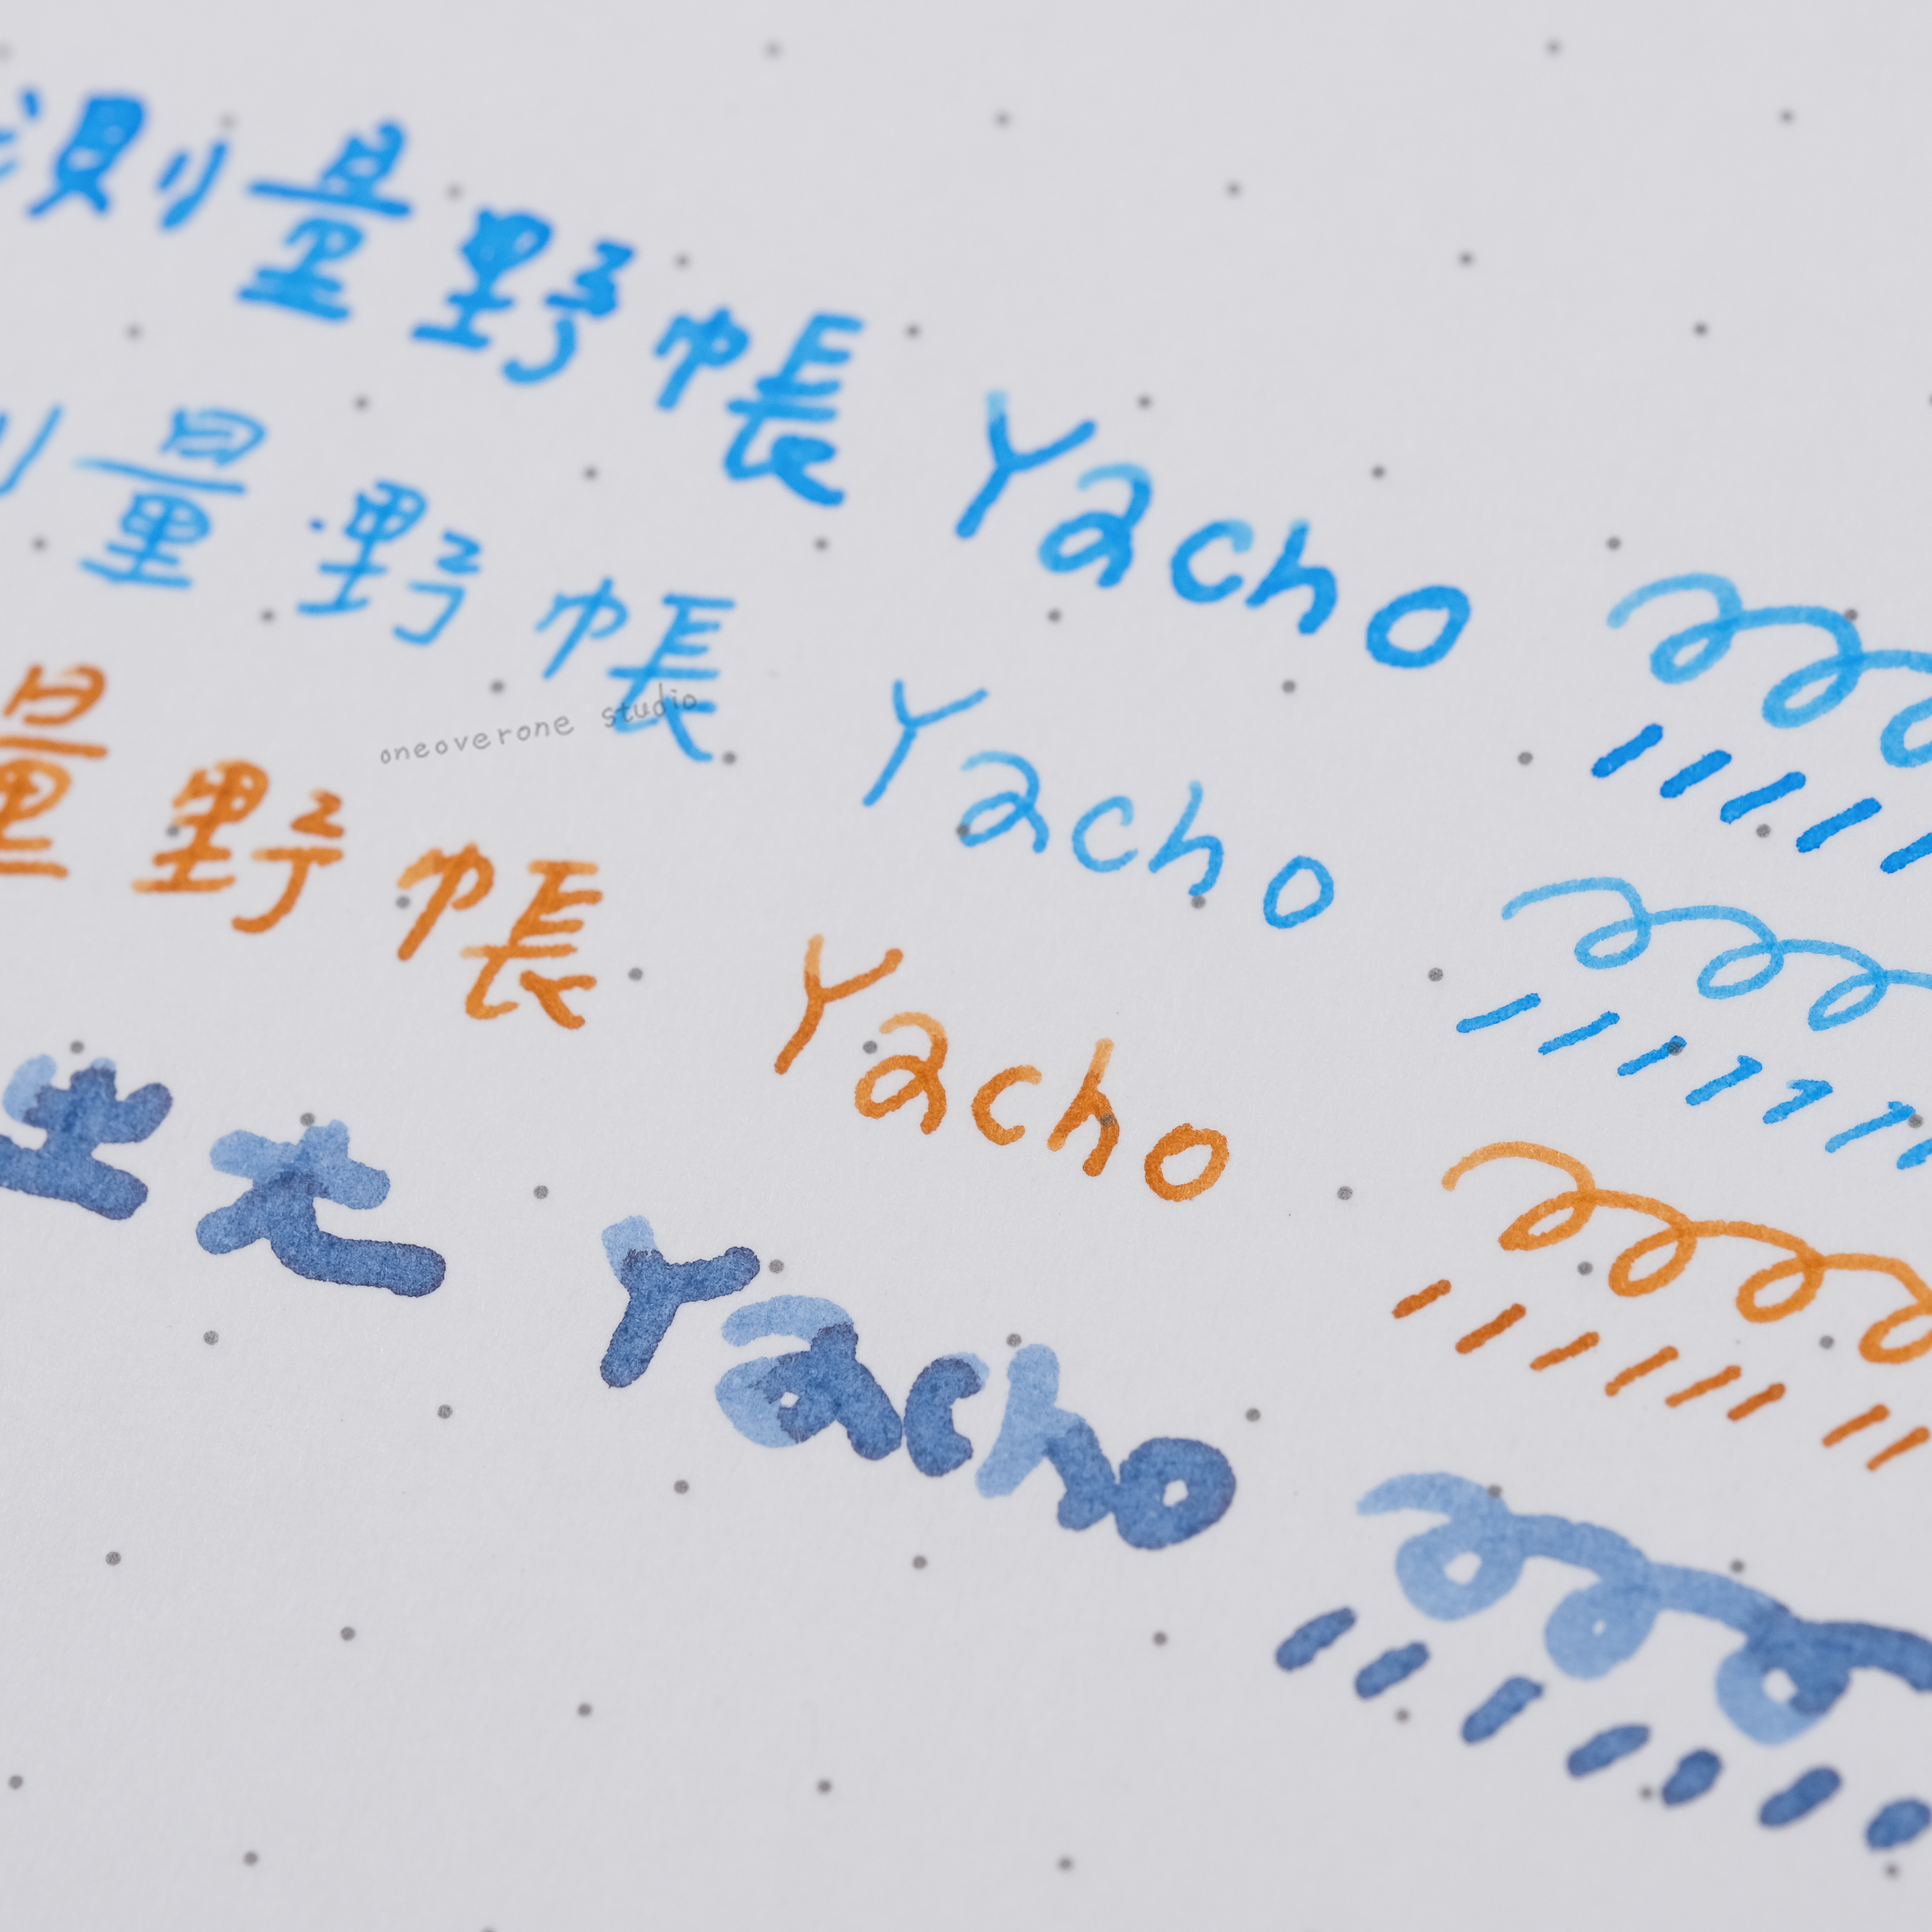 測量野帳 Yacho
量野帳 Yacho
oneoverone studio
量野帳 Yacho
Yacho